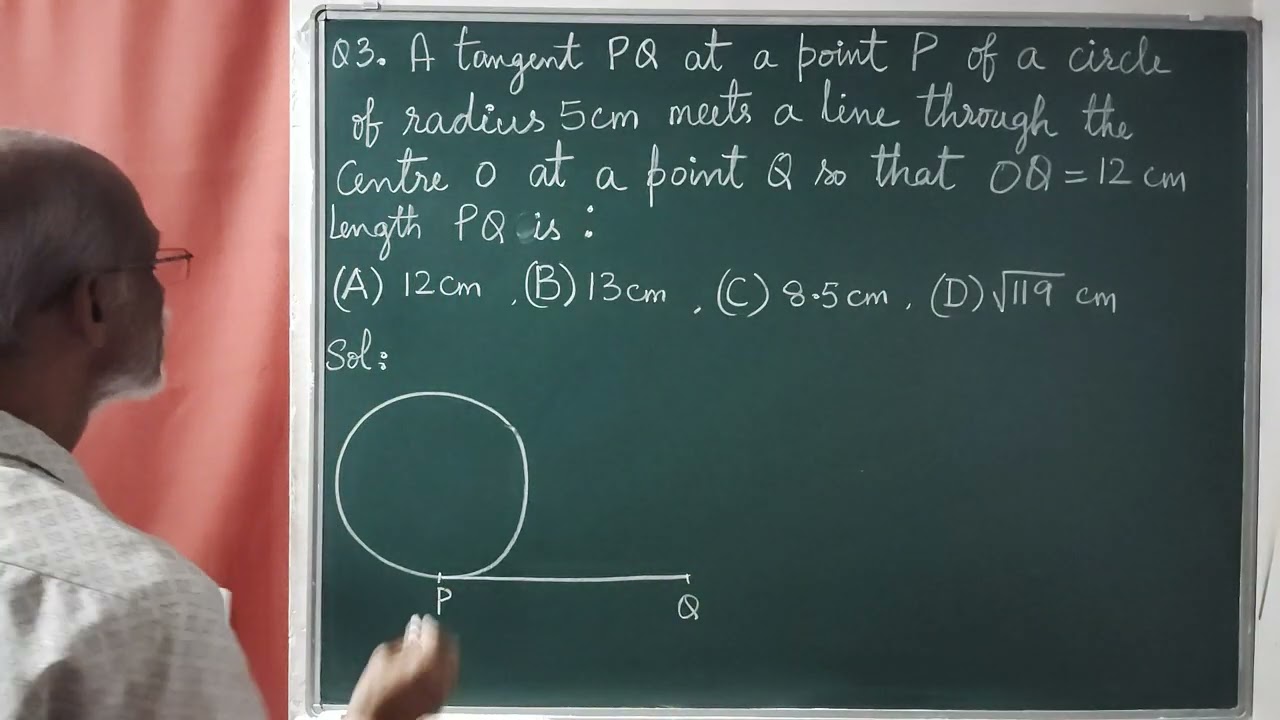 Q3. A tangent PQ at a point P of a circle
of radius 5cm meets a line through the
Centre O at a point Q so that OQ = 12 cm
Length PQ is :
(A) 12cm , (B) 13cm , (C) 8.5cm , (D) √119 cm
Sol:
P
Q